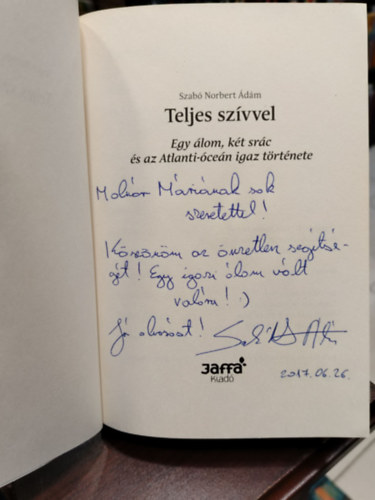 Szabó Norbert Ádám
Teljes szívvel
Egy álom, két srác
és az Atlanti-óceán igaz története
Molnár Máriának sok
szeretettel!
Köszönöm az önzetlen segítsé-
gét! Egy igazi álom vált
valóra! :)
Jó olvasást!
Jaffa
Kiadó
2017.06.26.